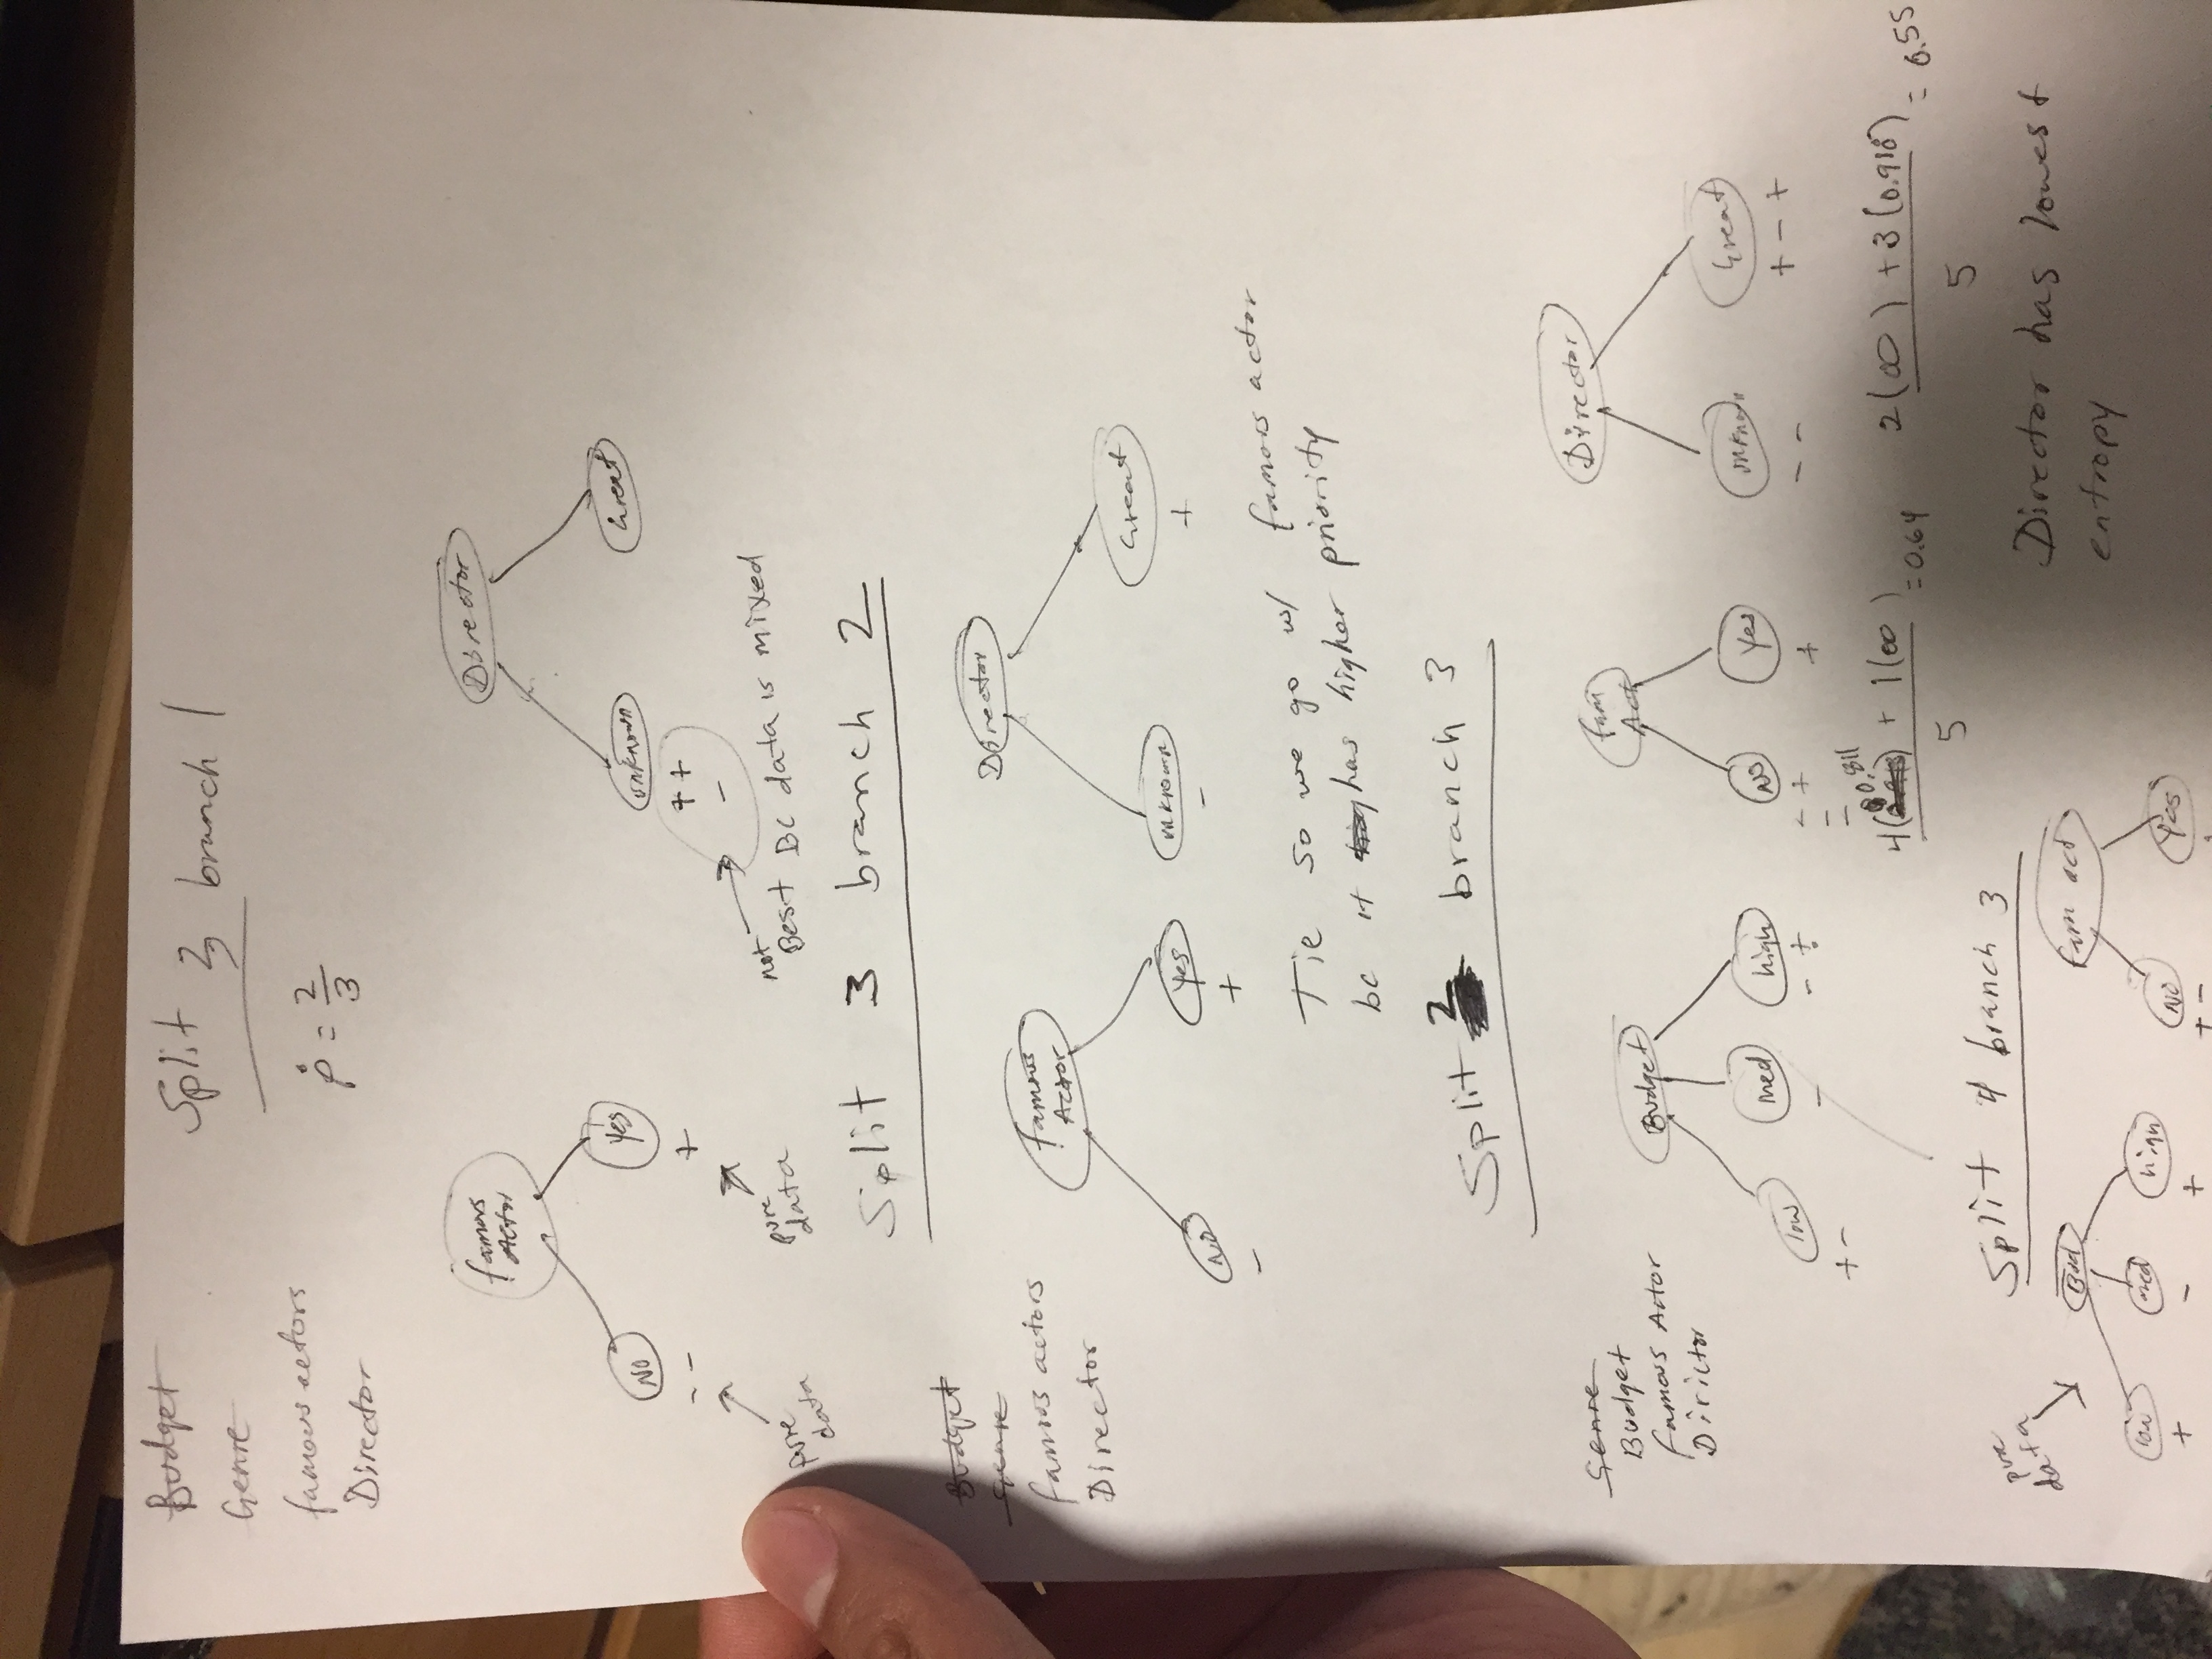 Budget
Genre
famous actors
Director
Split 3 branch 1
p = 2/3
famous
Actor
No
Yes
- -
+
pure
data
pure
data
Director
unknown
Great
+ +
-
not
Best BC data is mixed
Split 3 branch 2
Budget
Genre
famous actors
Director
famous
Actor
No
Yes
-
+
Director
unknown
Great
-
+
Tie so we go w/ famous actor
bc it has higher priority
Split 2 branch 3
Genre
Budget
Famous Actor
Dirictor
Budget
low
med
high
+ -
-
- +
fam
Act
No
Yes
- +
-
-
+
4(0.811) + 1(00) = 0.64
5
Director
unknown
Great
- -
+ - +
2(00) + 3(0.918) = 0.55
5
Director has lowest
entropy
Split 4 branch 3
pure
data
Bud
low
med
high
+
-
+
fam act
No
Yes
+ -